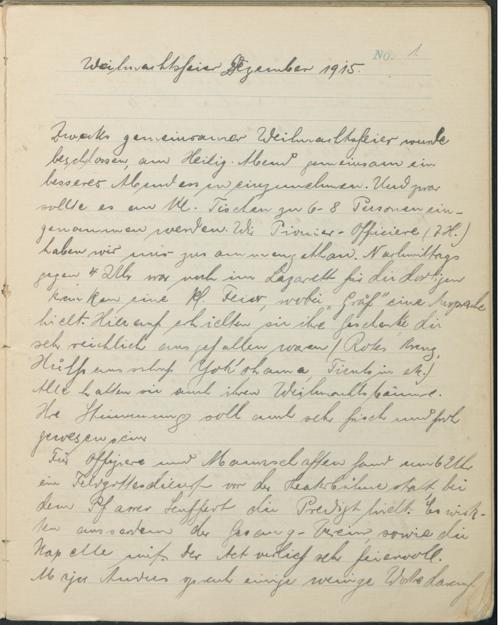 No. 1
Weihnachtsfeier Dezember 1915.
Zwecks gemeinsamer Weihnachtsfeier wurde
beschlossen, am Heilig. Abend gemeinsam ein
besseres Abendessen einzunehmen. Und zwar
sollte es an kl. Tischen zu 6-8 Personen ein-
genommen werden. Wir Pionier-Offiziere (7 H.)
haben wir uns zusammengethan. Nachmittags
gegen 4 Uhr war noch im Lazarett für die dortigen
Kranken eine kl. Feier, wobei "Gräf" eine Ansprache
hielt. Hierauf erhielten sie ihre Geschenke die
sehr reichlich ausgefallen waren (Rotes Kreuz,
Hülfsausschuß Yokohama Tientsin etc.)
Alle hatten sie auch ihren Weihnachtsbäume.
Ihre Stimmung soll auch sehr frisch und froh
gewesen sein
Für Offiziere und Mannschaften fand um 6 Uhr
ein Feldgottesdienst vor der Theaterbühne statt bei
dem Pfarrer die Predigt hielt. Es wirk-
ten ausserdem der Gesang-Verein, sowie die
Kapelle mit. Der Act verlief sehr feiervoll.
Major Anders sprach einige wenige Worte darauf